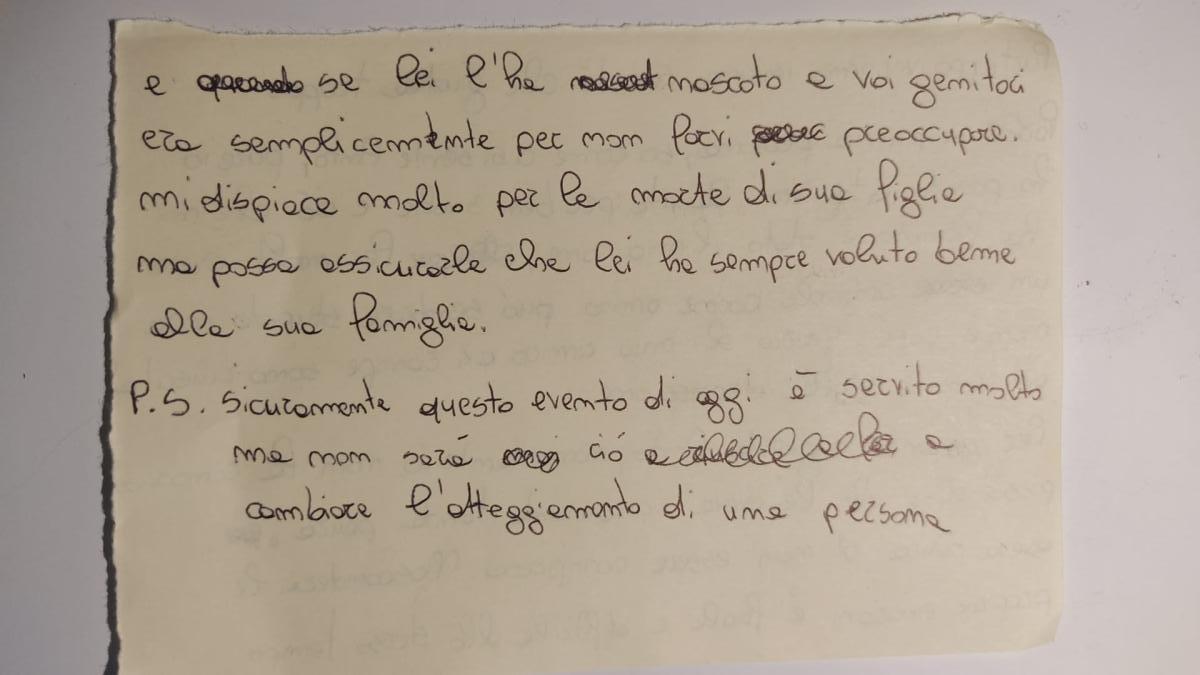 e se lei l'ha nascoto a voi genitori
era semplicemente per non farvi preoccupare.
mi dispiace molto per la morte di sua figlia
ma posso assicurarle che lei ha sempre voluto bene
alla sua famiglia.
P.S. Sicuramente questo evento di oggi è servito molto
ma non sarà ciò a
cambiare l'atteggiamento di una persona